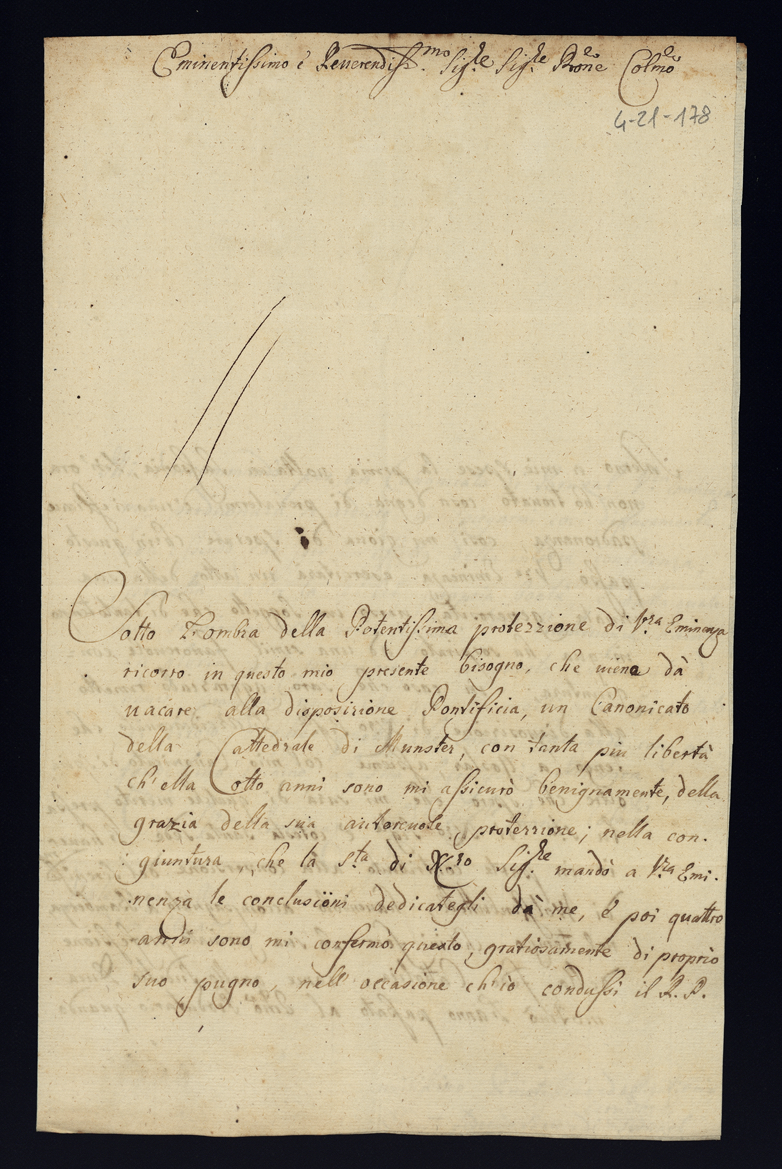 Eminentissimo è Reverendiss.mo Sig.re Sig.re Prone Colmo
4-21-178
Sotto l'ombra della Potentissima protezzione di V.ra Eminenza
ricorro in questo mio presente bisogno, che viene dà
vacare alla disposizione Pontificia, un Canonicato
della Cattedrale di Munster, con tanta piu libertà
ch'ella Otto anni sono mi assicurò benignamente, della
grazia della sua autorevole protezzione; nella con-
giuntura, che la S.ta di N.ro Sig.re mandò a V.ra Emi-
nenza le conclusioni dedicategli dà me, è poi quattro
anni sono mi confermò questo, gratiosamente di proprio
suo pugno, nell'occasione ch'io condussi il R. P.